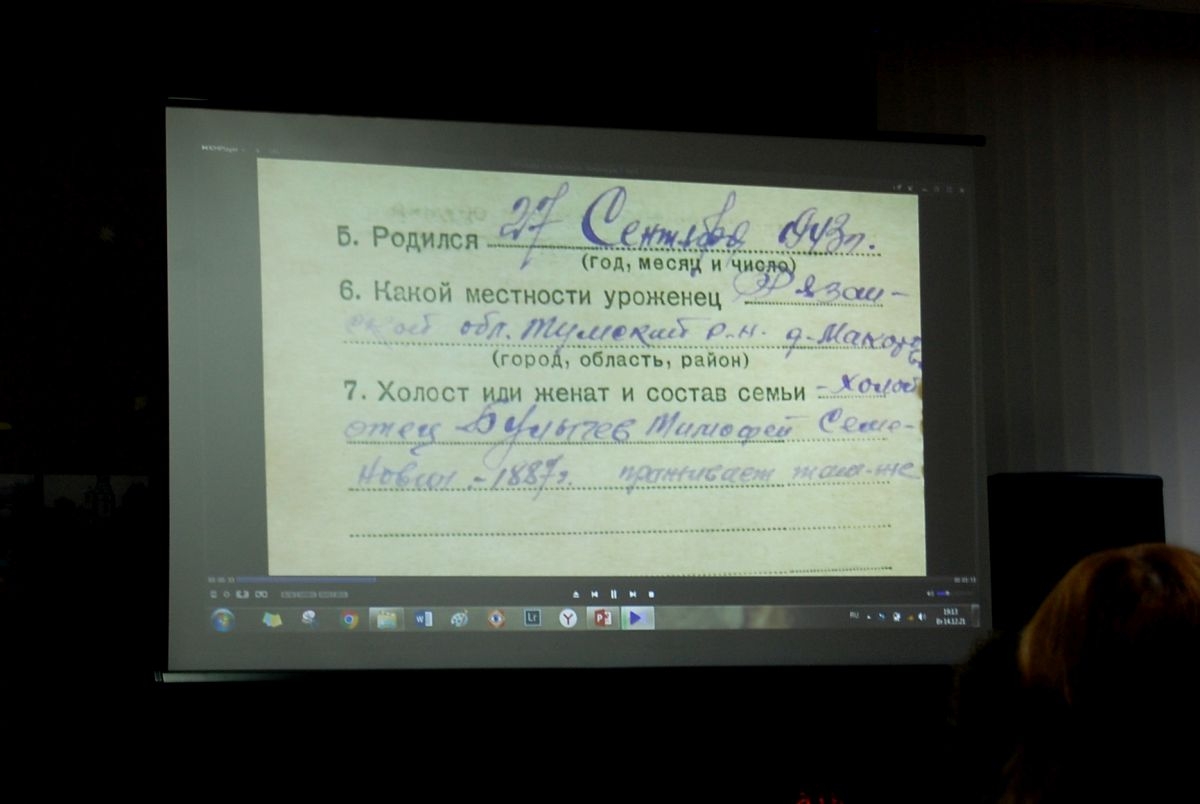 5. Родился 27 Сентября 1913г.
(год, месяц и число)
6. Какой местности уроженец Рязан-
ской обл. Тумский р-н. д-
(город, область, район)
7. Холост или женат и состав семьи - Холост
отец Булычев Тимофей Семе-
нович - 1887г. проживает там-же
Lr
W
Y
P
RU
19:13
Вт 14.12.21